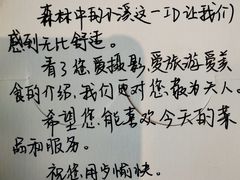 森林中的小溪这一ID让我们
感到无比舒适。
看了您爱摄影,爱旅游爱美
食的介绍,我们更对您敬为天人。
希望您能喜欢今天的菜
品和服务。
祝您用步愉快。